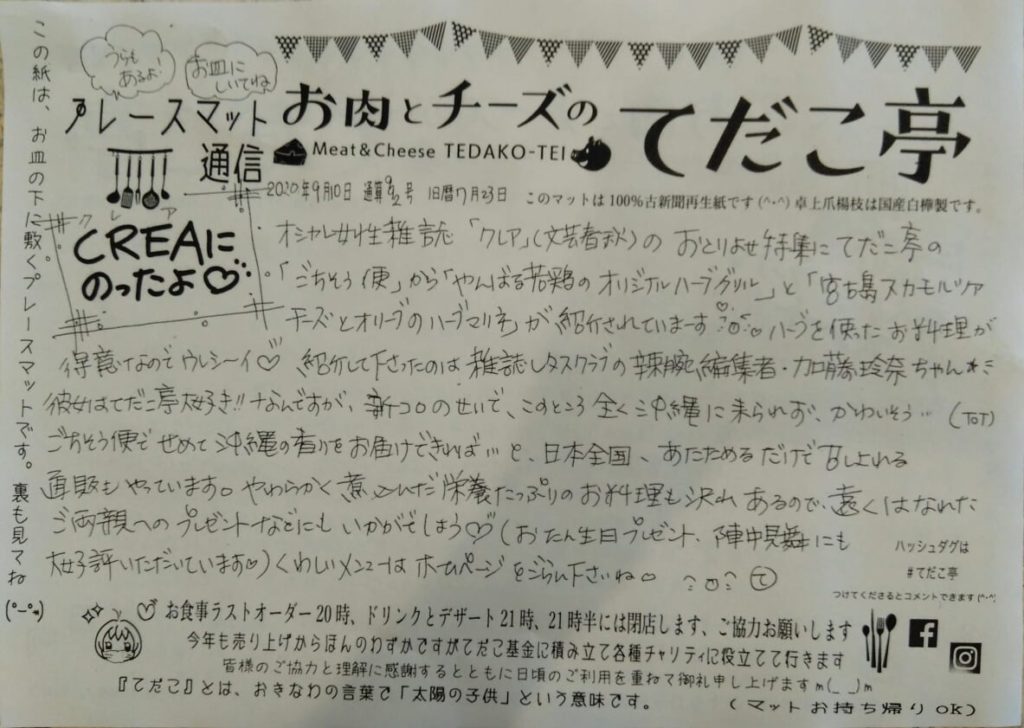 うらも
あるよ!
お皿に
しいてね
プレースマット
通信
お肉とチーズの
てだこ亭
Meat&Cheese TEDAKO-TEI
2020年9月10日 通算 号 旧暦7月23日
このマットは100%古新聞再生紙です(^-^)卓上爪楊枝は国産白樺製です。
クレア
CREAに
のったよ♡
オシャレ女性雑誌「クレア」(文芸春秋)の おとりよせ特集に てだこ亭の
「ごちそう便」から「やんばる若鶏の オリジナルハーブグリル」と「宮古島スカモルツァ
チーズとオリーブのハーブマリネ」が 紹介されています ハーブを使った お料理が
得意なのでウレシーイ♡ 紹介して下さったのは 雑誌レタスクラブの辣腕編集者・加藤玲奈ちゃん
彼女はてだこ亭大好き!! なんですが、新コロのせいで、このところ 全く沖縄に来られず、かわいそう… (ToT)
ごちそう便で せめて 沖縄の香りを お届けできれば… と、日本全国、あたためるだけで召し上れる
通販も やっています。やわらかく 煮込んだ 栄養たっぷりの お料理も 沢山 あるので、遠くはなれた
ご両親への プレゼントなどにも いかがでしょう♡ (おたん生日プレゼント、陣中見舞にも
大好評いただいています♡) くわしいメニューは ホームページをごらん下さいね
て
ハッシュダグは
#てだこ亭
つけてくださるとコメントできます(^-^)
この紙は、お皿の下に敷くプレースマットです。裏も見てね
(°ー°*)
♡ お食事ラストオーダー20時、ドリンクとデザート21時、21時半には閉店します、ご協力お願いします
今年も売り上げからほんのわずかですがてだこ基金に積み立て各種チャリティに役立てて行きます
皆様のご協力と理解に感謝するとともに日頃のご利用を重ねて御礼申し上げますm(_ _)m
『てだこ』とは、おきなわの言葉で「太陽の子供」という意味です。
(マットお持ち帰りOK)